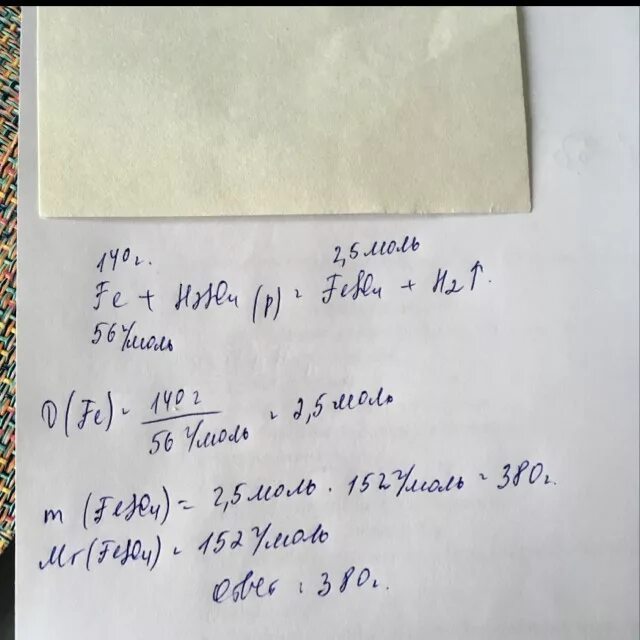 140г. 2,5моль
Fe + H2SO4 (р) = FeSO4 + H2↑.
56 г/моль
υ(Fe) = 140г / 56 г/моль = 2,5моль
m (FeSO4) = 2,5моль · 152 г/моль = 380г.
Mr(FeSO4) = 152 г/моль
Ответ: 380г.